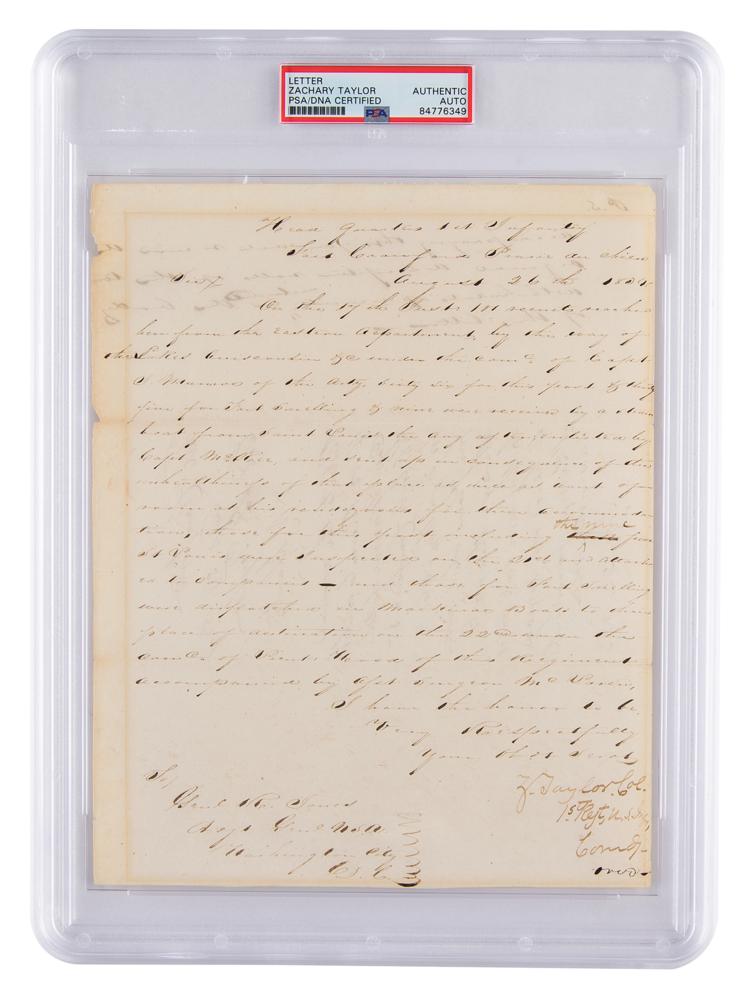 LETTER
ZACHARY TAYLOR AUTHENTIC
PSA/DNA CERTIFIED AUTO
PSA 84776349
P.S.
Head Quarters 1st Infantry
Fort Crawford Prairie du Chien
August 26th
Sir,
On the 17th Inst. 111 recruits reached
here from the Eastern department, by the way of
the Lakes Ouisconsin &c under the comd. of Capt.
J Munroe of the Arty sixty six for this post & thirty
five for Fort Snelling & nine were received by a steam
boat from Saint Louis the day after, enlisted by
Capt. and sent up in consequence of the
unhealthiness of that place as well as want of
room at his rendezvous for their accommoda
tion, those for this post, including the nine from
St Louis, were Inspected on the 21st and attach
ed to Companies — and those for Fort Snelling
were dispatched in Mackinac Boats to their
place of destination on the 22d under the
comd. of Lieut. Wood of this Regiment
accompanied by Asst Surgeon
I have the honor to be
Very Respectfully
Your Obt Servt
Z. Taylor Col.
1st Regt U.S. Infy,
Comdg
over
To,
Genl. R. Jones
Adjt Genl
Washington City
D.C.